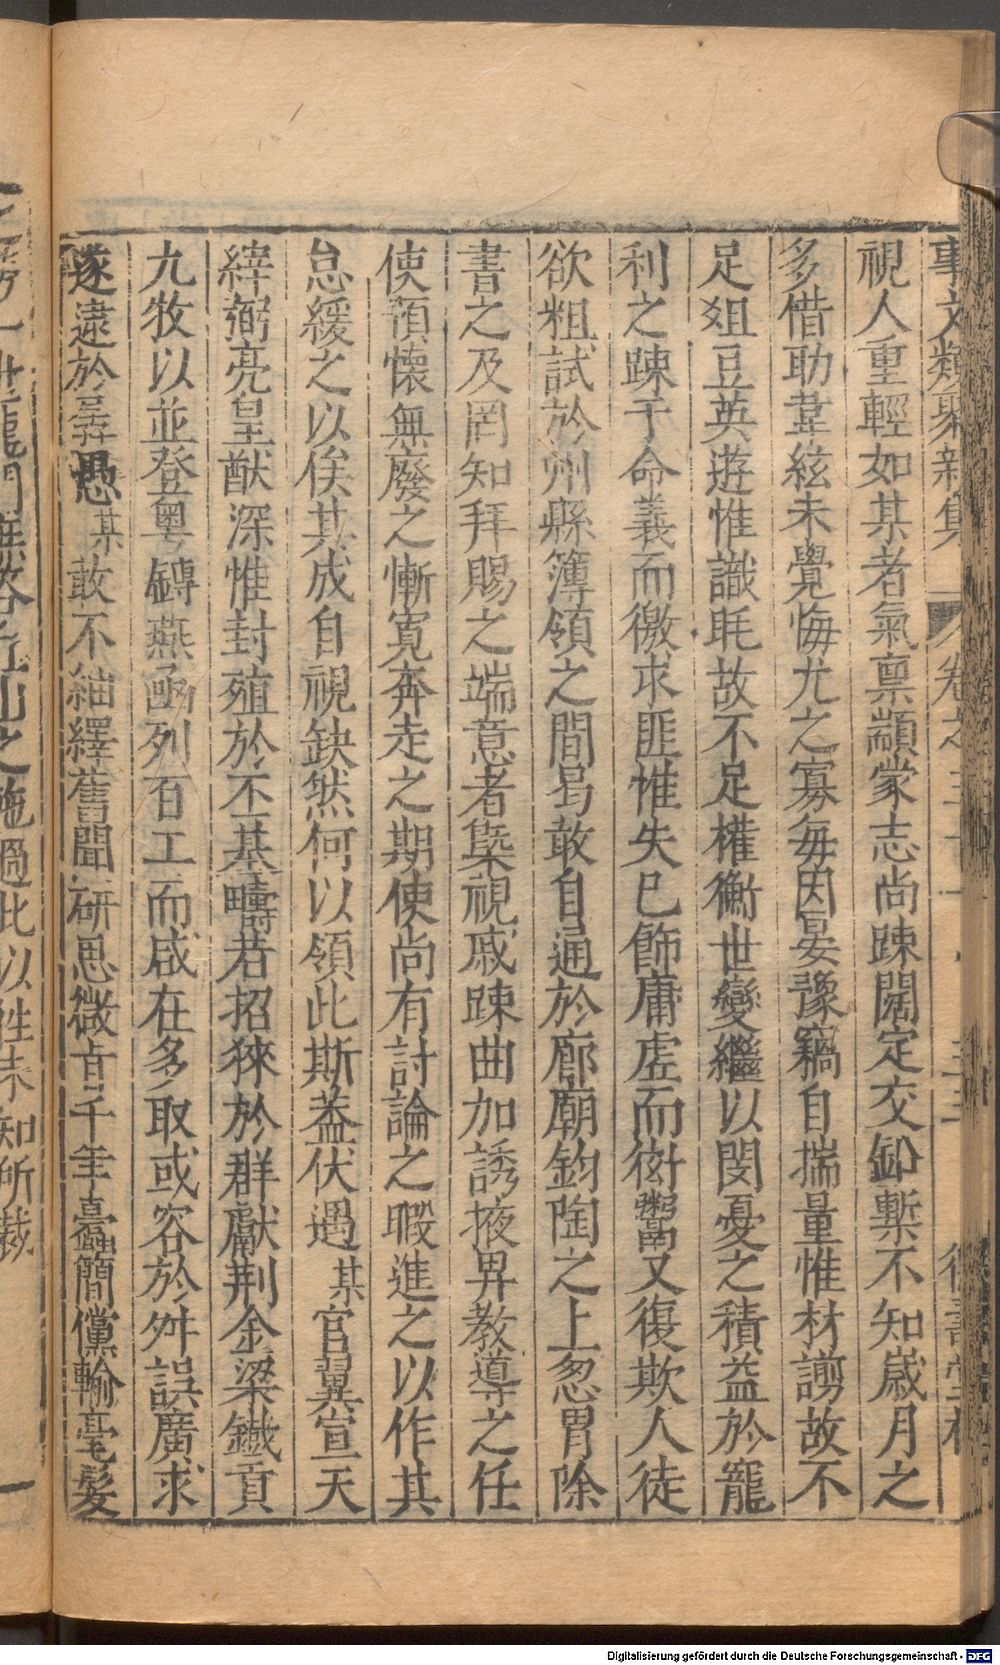 事文類聚新集 卷之三十 三十三 德壽堂梓
視人重輕如某者氣禀顓蒙志尚踈闊定交鉛槧不知歲月之
多借助韋絃未覺悔尤之寡每因宴豫竊自揣量惟材謭故不
足俎豆英遊惟識眊故不足權衡世變繼以閔憂之積益於寵
利之踈于命義而徼求匪惟失已飾庸虛而衒鬻又復欺人徒
欲粗試於州縣簿領之間曷敢自通於廊廟鈞陶之上忽冐除
書之及罔知拜賜之端意者槩視戚踈曲加誘掖畀教導之任
使預懷無廢之慚寛奔走之期使尚有討論之暇進之以作其
怠緩之以俟其成自視缺然何以領此斯葢伏遇某官翼宣天
緯弼亮皇猷深惟封殖於丕基疇若招徠於群獻荆金梁鐵貢
九牧以並登粤鏄燕函列百工而咸在多取或容於舛誤廣求
遂遠於㝵愚某敢不紬繹舊聞研思微㫖千年蠧簡儻輸毫髮
之勞一世龍門無咎丘山之施過此以往未知所裁
Digitalisierung gefördert durch die Deutsche Forschungsgemeinschaft - DFG